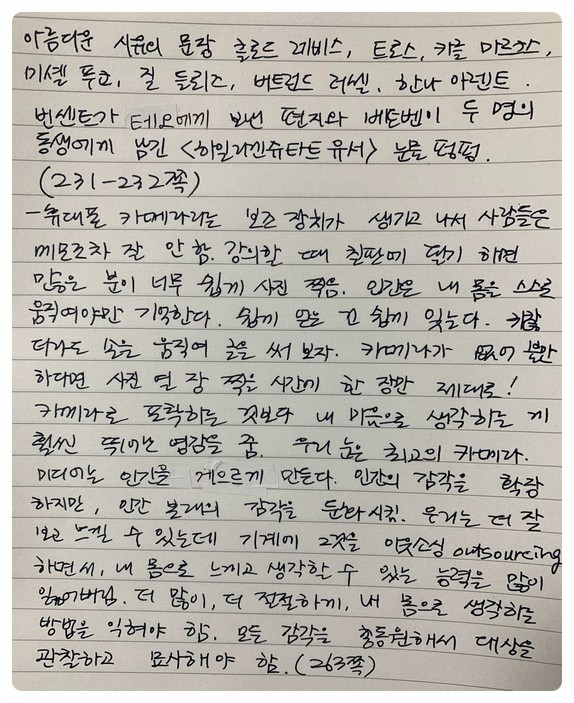 아름다운 사유의 문장 클로드 레비스, 트로스, 카를 마르크스,
미셸 푸코, 질 들뢰즈, 버트런드 러셀, 한나 아렌트.
빈센트가 테오에게 보낸 편지와 베토벤이 두 명의
동생에게 남긴 <하일리겐슈타트 유서> 눈물 펑펑.
(231-232쪽)
-휴대폰 카메라라는 보존 장치가 생기고 나서 사람들은
메모조차 잘 안 함. 강의할 때 칠판에 필기 하면
많은 분이 너무 쉽게 사진 찍음. 인간은 내 몸을 스스로
움직여야만 기억한다. 쉽게 얻은 건 쉽게 잊는다.
더라도 손을 움직여 글을 써 보자. 카메라가 없어 불안
하다면 사진 열 장 찍을 시간에 한 장만 제대로!
카메라로 포착하는 것보다 내 마음으로 생각하는 게
훨씬 뛰어난 영감을 줌. 우리 눈은 최고의 카메라.
미디어는 인간을 게으르게 만든다. 인간의 감각을 확장
하지만, 인간 본래의 감각을 둔화시킴. 우리는 더 잘
보고 느낄 수 있는데 기계에 그것을 아웃소싱 outsourcing
하면서, 내 몸으로 느끼고 생각할 수 있는 능력을 많이
잃어버림. 더 많이, 더 전절하게, 내 몸으로 생각하는
방법을 익혀야 함. 모든 감각을 총동원해서 대상을
관찰하고 묘사해야 함. (263쪽)